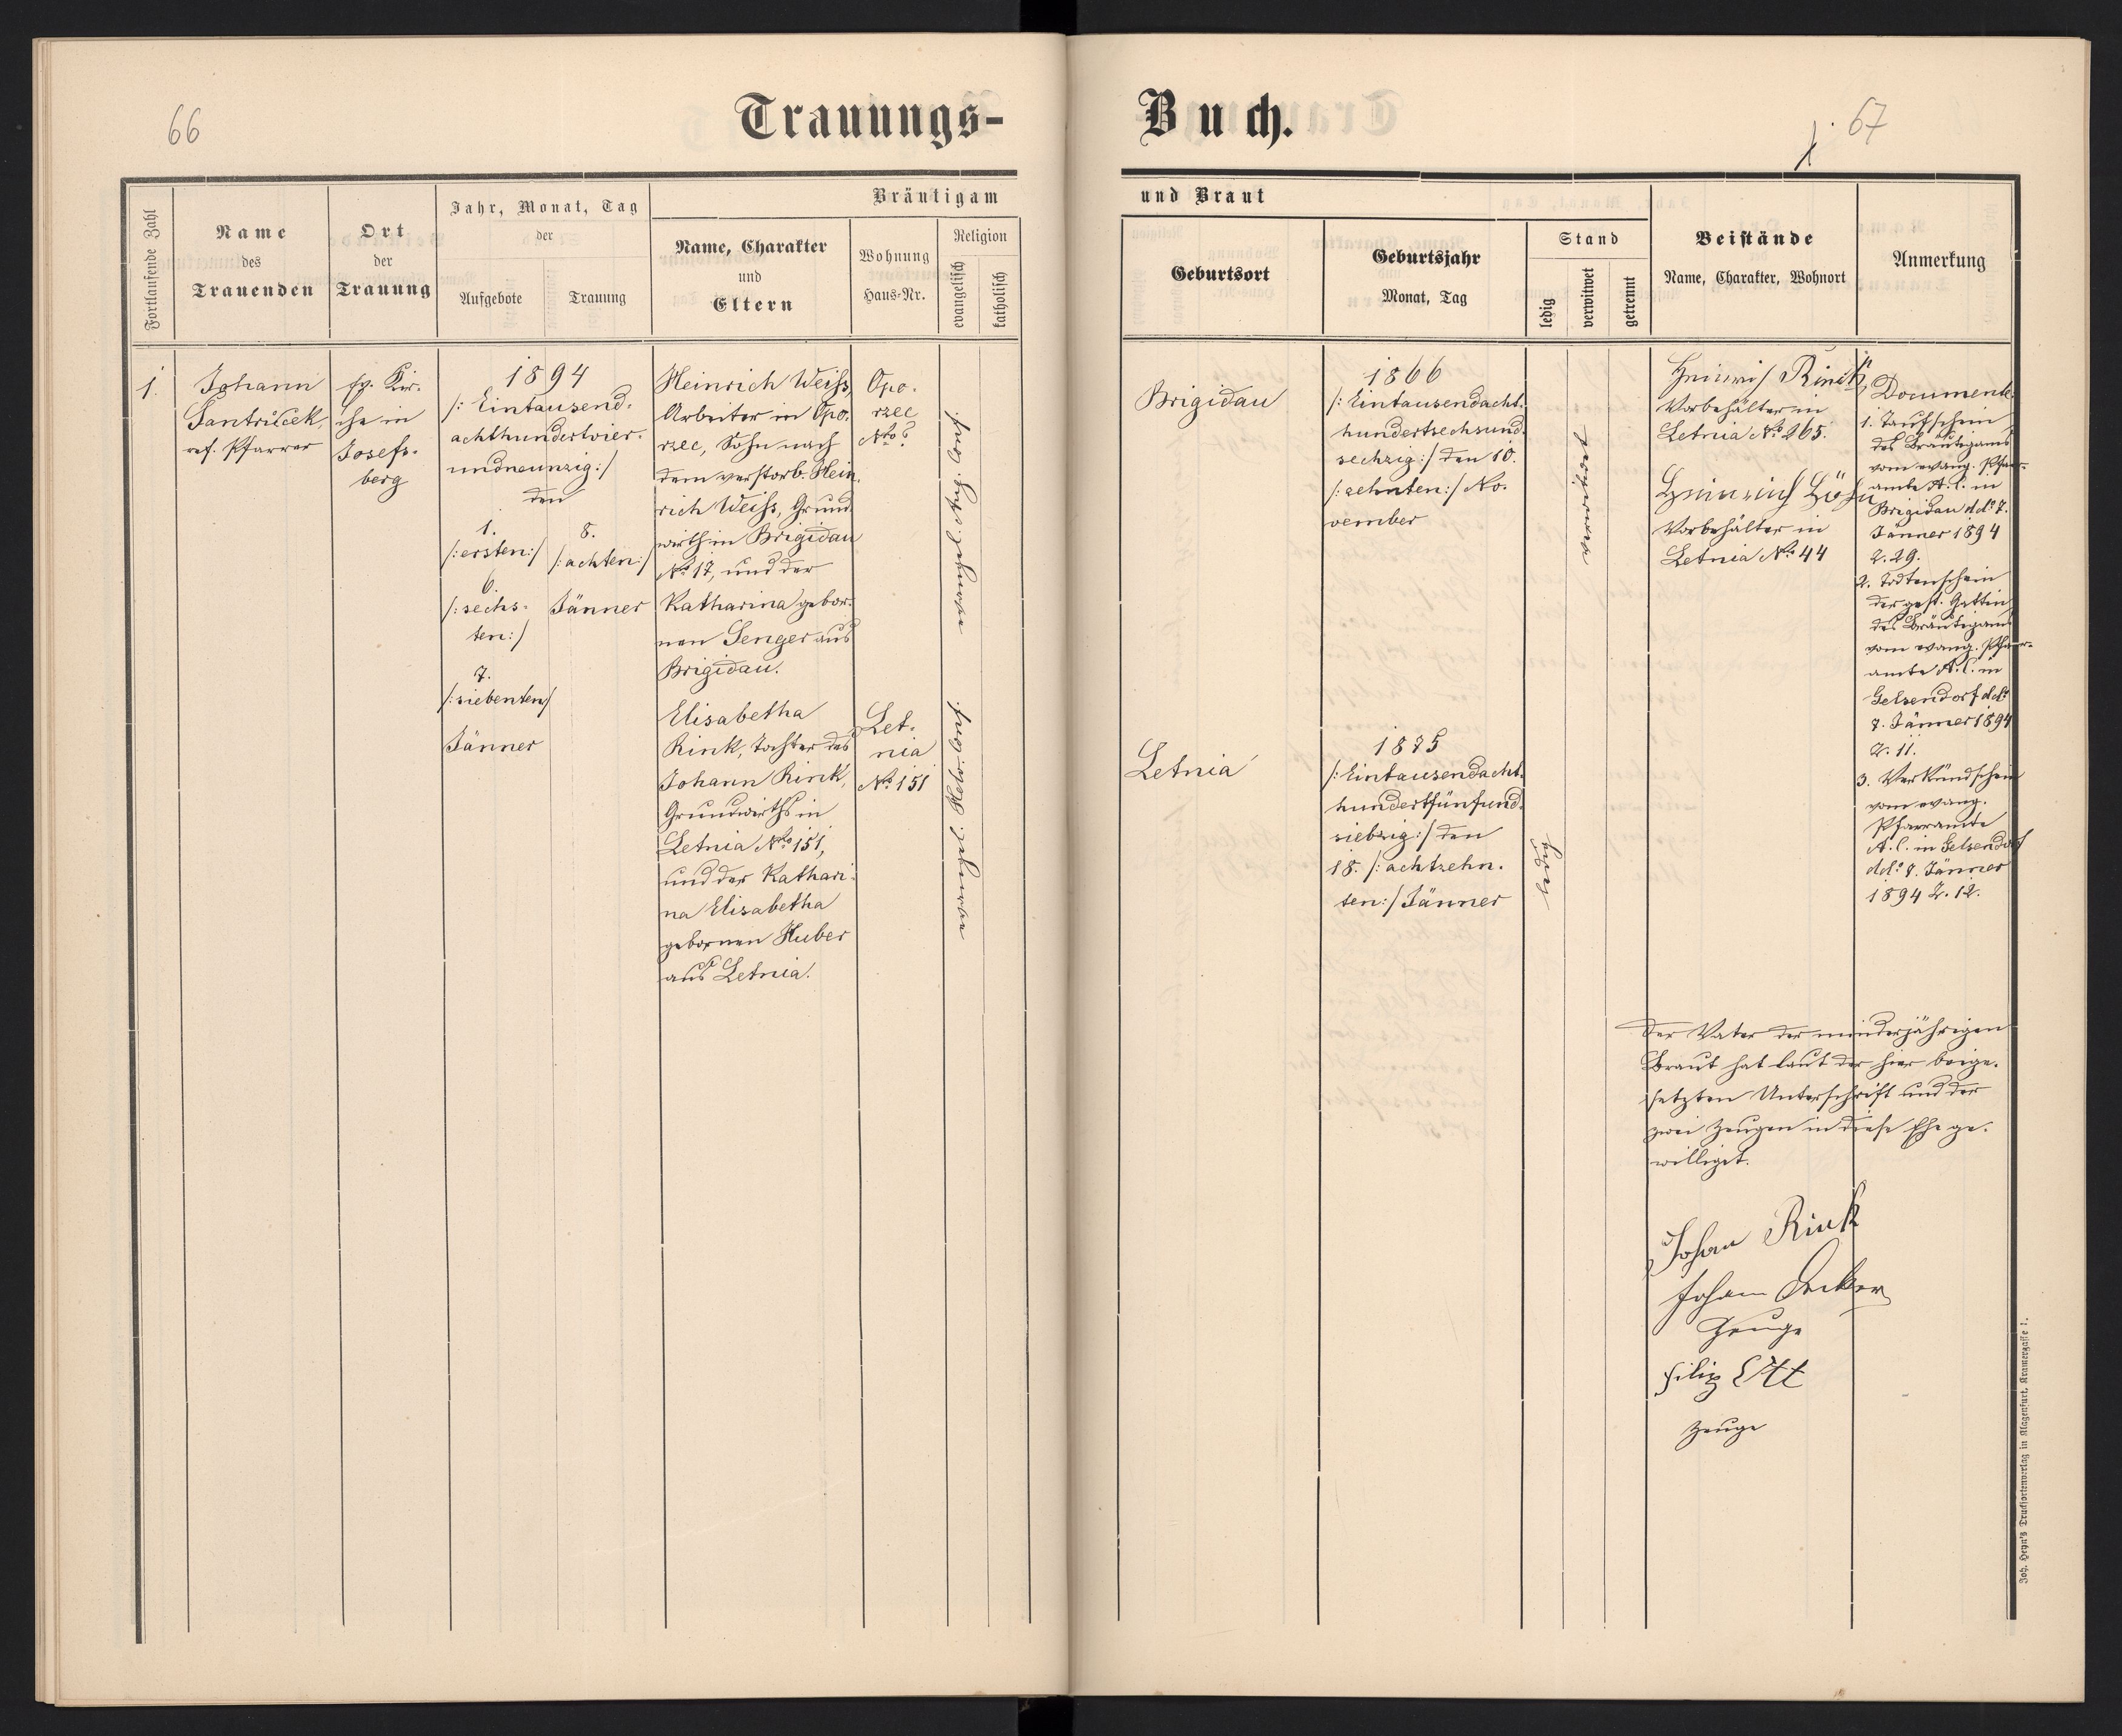 66
Trauungs-
Buch.
67
Fortlaufende Zahl
Name
des
Trauenden
Ort
der
Trauung
Jahr, Monat, Tag
der
Aufgebote
Trauung
Bräutigam
Name, Charakter
und
Eltern
Wohnung
Haus-Nr.
Religion
evangelisch
katholisch
und Braut
Geburtsort
Geburtsjahr
Monat, Tag
Stand
ledig
verwitwet
getrennt
Beistände
Name, Charakter, Wohnort
Anmerkung
1.
Johann
Jantriček
ref. Pfarrer
ev. Kir-
che in
Josefs-
berg
1894
/: Eintausend-
achthundertvier-
undneunzig:/
den
1.
/:ersten:/
6.
/:sechs-
ten:/
7.
/:siebenten/
Jänner
8.
/:achten:/
Jänner
Heinrich Weiss,
Arbeiter in Opo-
rzec, Sohn nach
dem verstorb. Hein-
rich Weiss, Grund-
wirth in Brigidau
No 17, und der
Katharina gebor-
nen Senger aus
Brigidau.
Opo-
rzec
No ?
evang.
Brigidau
1866
/:Eintausendacht-
hundertsechsund-
sechzig:/ den 10.
/:zehnten:/ No-
vember
verwitwet
Heinrich Rink,
Vorbehälter in
Letnia No 265.
Heinrich
Vorbehälter in
Letnia No 44
Documente
1. Taufschein
des Bräutigams
vom evang. Pfarr-
amte A. C. in
Brigidau ddo 7.
Jänner 1894
Z. 29.
2. Todtenschein
der gest. Gattin
des Bräutigams
vom evang. Pfarr-
amte A. C. in
Gelsendorf ddo
7. Jänner 1894
Z. 11.
3. Verkündschein
vom evang.
Pfarramte
A. C. in Gelsendorf
ddo 7. Jänner
1894 Z. 12.
Elisabetha
Rink, Tochter des
Johann Rink,
Grundwirths in
Letnia Nro 151,
und der Kathari-
na Elisabetha
gebornen Huber
aus Letnia.
Let-
nia
No 151
evang.
Letnia
1875
/:Eintausendacht-
hundertfünfund-
siebzig:/ den
18. /:achtzehn-
ten:/ Jänner
ledig
Der Vater der minderjährigen
Braut hat laut der hier beige-
setzten Unterschrift und der
zwei Zeugen in diese Ehe ge-
williget.
Johan Rink
Johann Decker
Zeuge
Filip Ott
Zeuge
Joh. Heyn's Drucksortenverlag in Klagenfurt, Kramergasse 1.